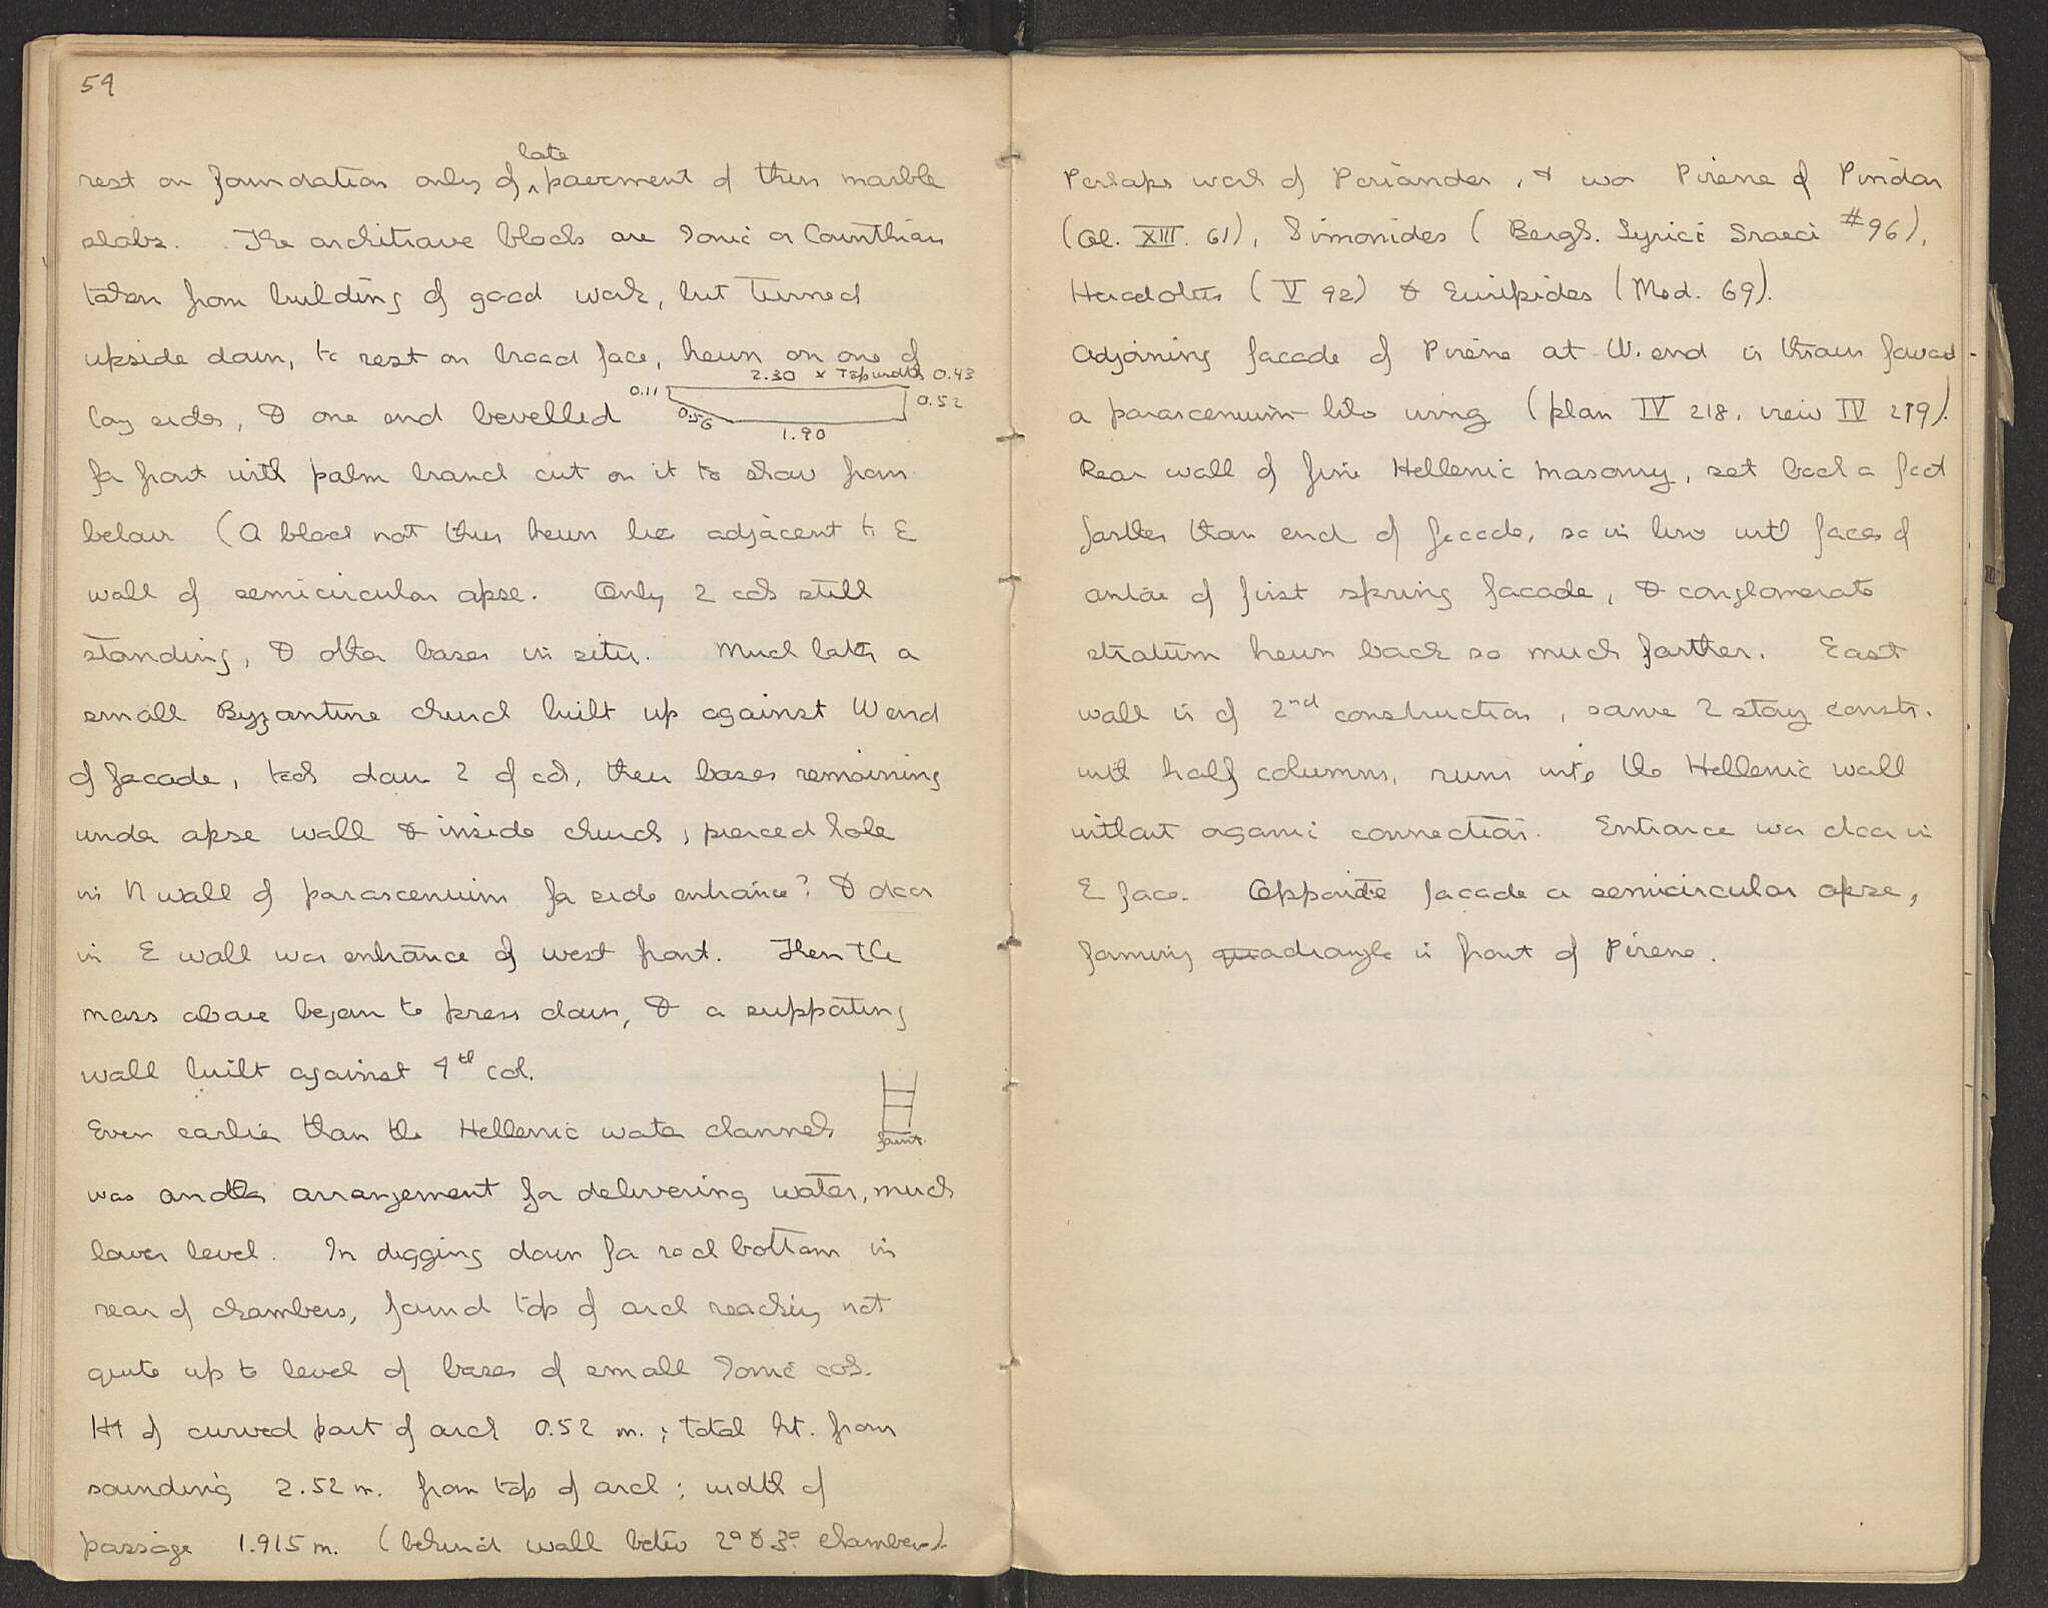 54
late
rest on foundation only of ^ pavement of thin marble
slabs. The architrave blocks are Ionic or Corinthian
taken from building of good work, but turned
upside down, to rest on broad face, hewn on one of
2.30 x Top width 0.43
0.11
0.52
long sides, & one end bevelled
0.56
1.90
for front with palm branch cut on it to show from
below (A block not thus hewn lies adjacent to E
wall of semicircular apse. Only 2 cols still
standing, & other bases in situ. Much later a
small Byzantine church built up against W end
of facade, took down 2 of cols, their bases remaining
under apse wall & inside church, pierced hole
in N wall of parascenium for side entrance? & door
in E wall was entrance of west front. Then the
mass above began to press down, & a supporting
wall built against 4th col.
Even earlier than the Hellenic water channels
faint.
was another arrangement for delivering water, much
lower level. In digging down for rock bottom in
rear of chambers, found top of arch reaching not
quite up to level of bases of small Ionic cols.
Ht of curved part of arch 0.52 m.; total ht. from
sounding 2.52 m. from top of arch; width of
passage 1.915 m. (behind wall betw 2º & 3º chambers).
Perhaps work of Periander, & was Pirene of Pindar
(Ol. XIII. 61), Simonides (Bergk. Lyrici Graeci #96),
Herodotus (V 92) & Euripides (Med. 69).
Adjoining facade of Pirene at W. end is thrown forward
a parascenium-like wing (plan IV 218, view IV 219).
Rear wall of fine Hellenic masonry, set back a foot
farther than end of facade, so in line with faces of
antae of first spring facade, & conglomerate
stratum hewn back so much farther. East
wall is of 2nd construction, same 2 story constr.
with half columns, runs into the Hellenic wall
without organic connection. Entrance was door in
E face. Opposite facade a semicircular apse,
forming quadrangle in front of Pirene.